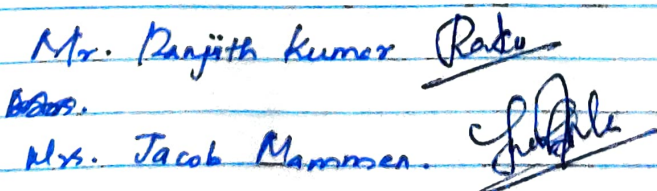 Mr. Ranjith Kumar
Mrs. Jacob Mammen.